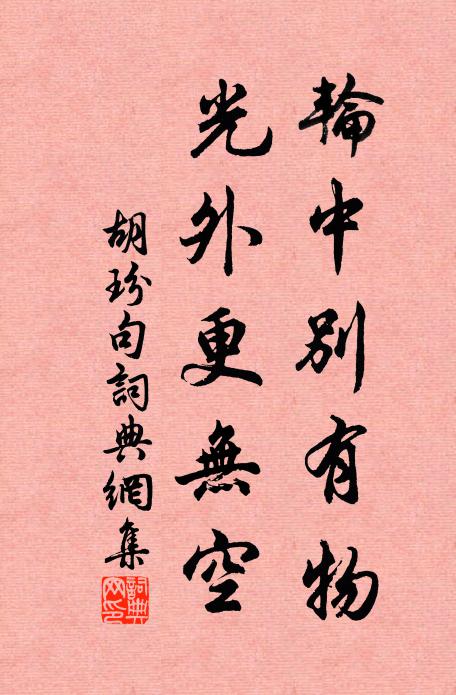 輪中別有物
光外更無空
胡玢句詞典網集
詞典
网印